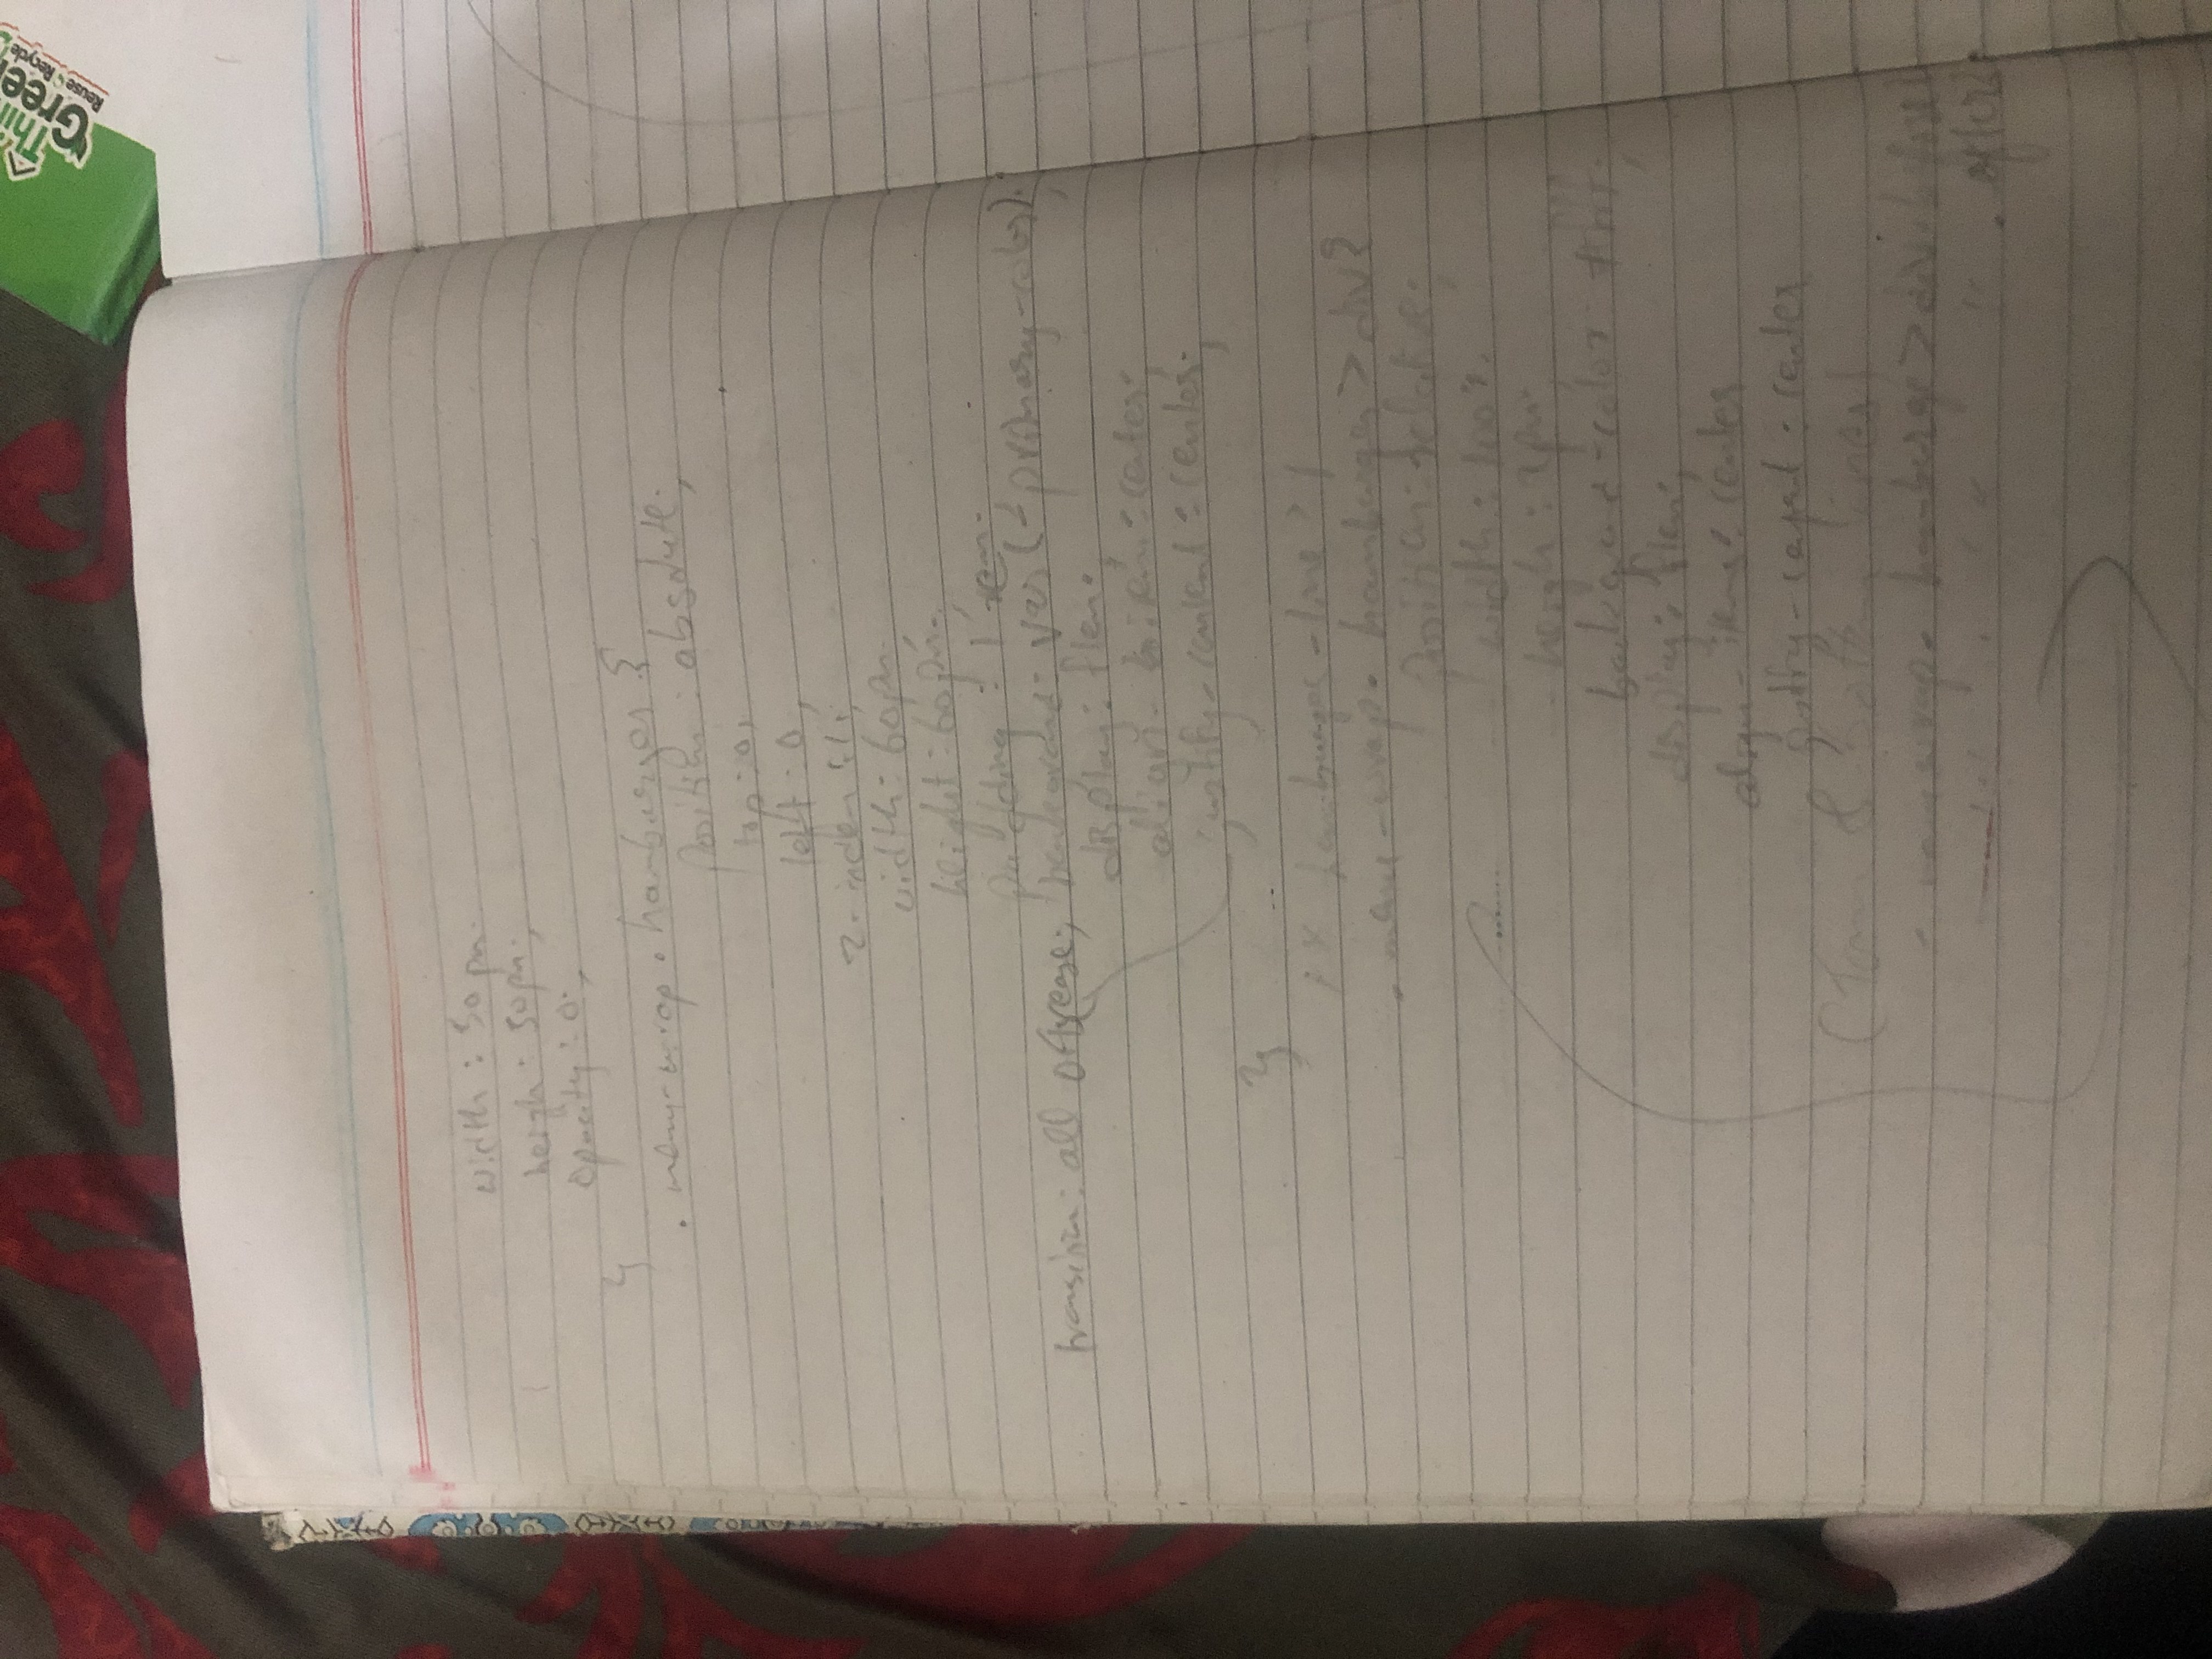 Think
Green
Reuse & Recycle
width : 50px.
heigh : 50px.;
opacity : 0.;
}
. menu-wrap . hamburger {
position : absolute.;
top : 0;
left : 0,
z-index : 1;
width : 60px.
height : 60px.;
padding : 1 rem.
transition : all ease; background : var (- primary-color).;
display : flex.;
align- item : center;
justify-content : center.;
}
/* hamburger-line */
. menu-wrap . hamburger > div {
position : relative;
width : 100%.
heigh : 2px.
background-color #fff;
display : flex;
align- items : center
justify- : center
& lines)
wrap . hamburge > div
" " . after